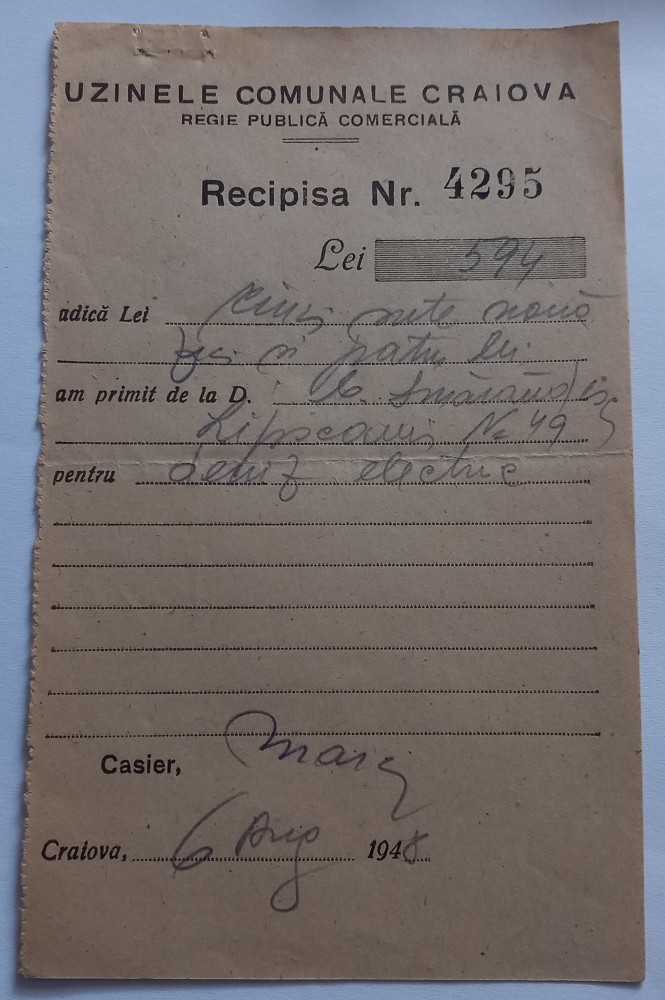 UZINELE COMUNALE CRAIOVA
REGIE PUBLICĂ COMERCIALĂ
Recipisa Nr. 4295
Lei 594
adică Lei cinci sute nouă
zeci și patru lei
am primit de la D.
Lipscani No 49
pentru electric
Casier,
Craiova, 6 Aug 1948